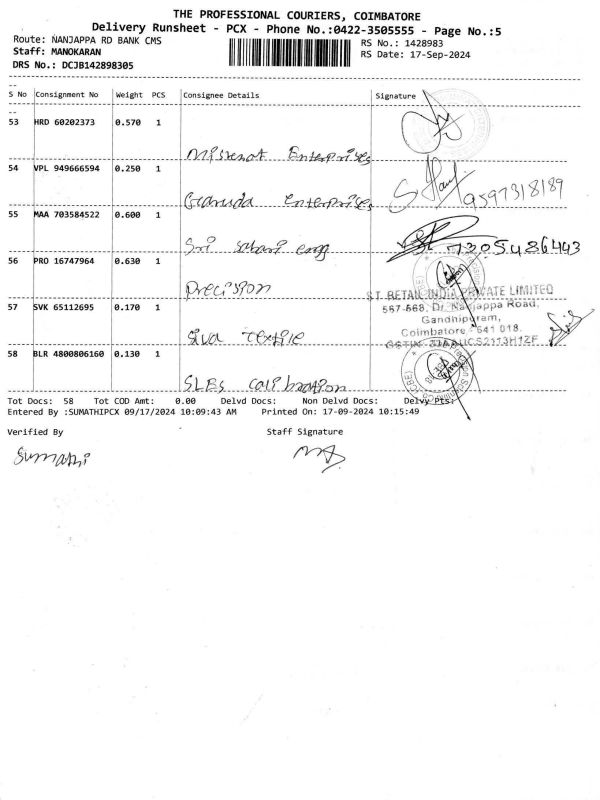 THE PROFESSIONAL COURIERS, COIMBATORE
Delivery Runsheet - PCX - Phone No.:0422-3505555 - Page No.:5
Route: NANJAPPA RD BANK CMS
RS No.: 1428983
Staff: MANOKARAN
RS Date: 17-Sep-2024
DRS No.: DCJB142898305
S No Consignment No Weight PCS Consignee Details Signature
53 HRD 60202373 0.570 1
Enterprises
54 VPL 949666594 0.250 1
Garuda enterprises
9597318189
55 MAA 703584522 0.600 1
Sri sabari engg
7305486443
56 PRO 16747964 0.630 1
Precision
S.T. RETAIL INDIA PRIVATE LIMITED
567-568, Dr. Nanjappa Road,
Gandhipuram,
Coimbatore - 641 018.
57 SVK 65112695 0.170 1
Siva textile
58 BLR 4800806160 0.130 1
SLES calibration
Tot Docs: 58 Tot COD Amt: 0.00 Delvd Docs: Non Delvd Docs: Delvy Pts:
Entered By :SUMATHIPCX 09/17/2024 10:09:43 AM Printed On: 17-09-2024 10:15:49
Verified By Staff Signature
Sumathi